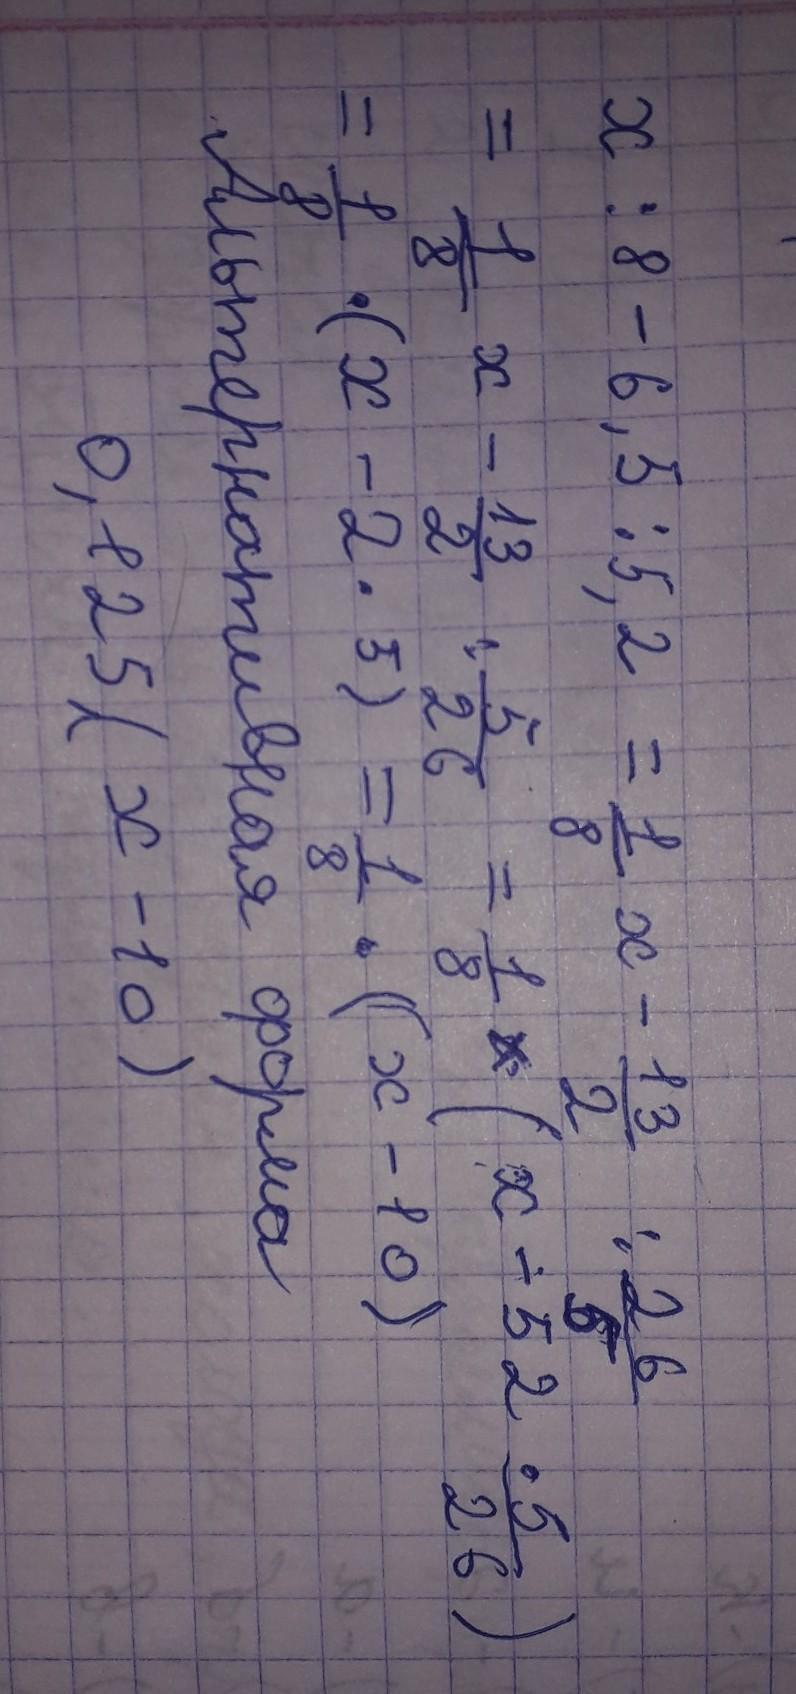 x : 8 - 6,5 : 5,2 = 1/8 x - 13/2 : 26/5
= 1/8 x - 13/2 : 5/26 = 1/8 · (x - 52 · 5/26)
= 1/8 · (x - 2 · 5) = 1/8 · (x - 10)
Альтернативная форма
0,125(x - 10)